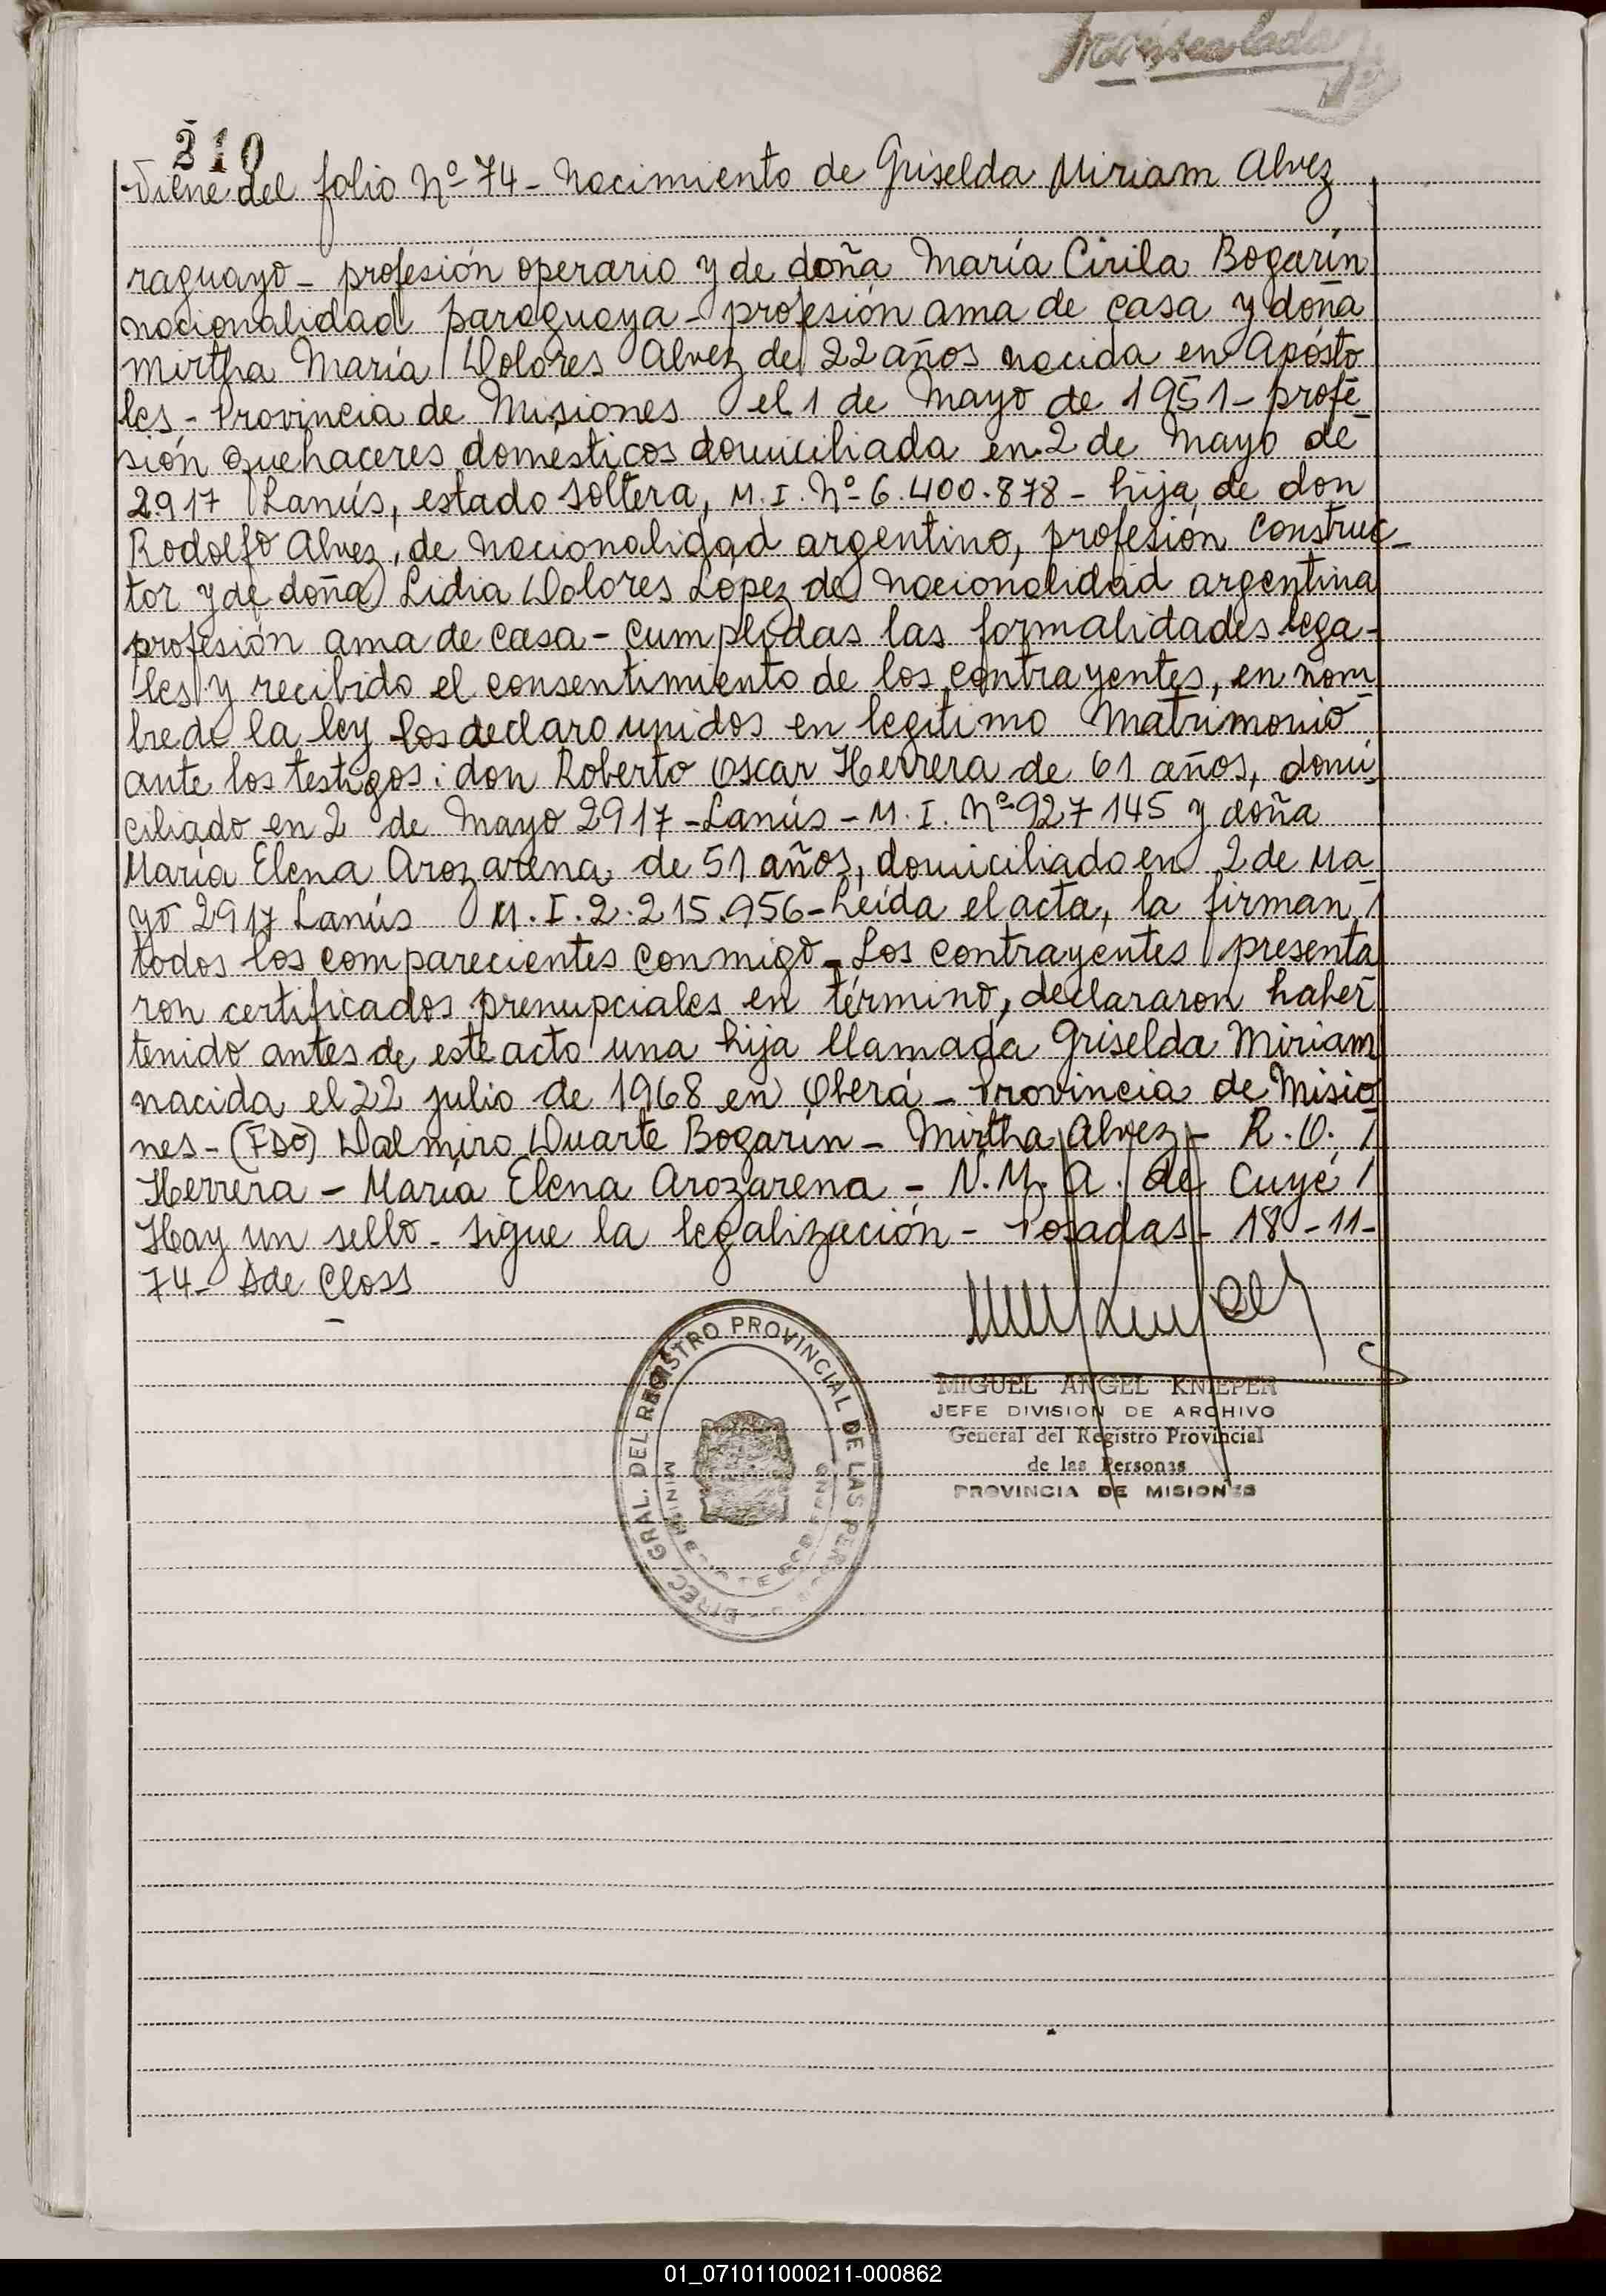 Inmaculada
210
Viene del folio Nº 74 - Nacimiento de Griselda Miriam Alvez
raguayo - profesión operario y de doña María Cirila Bogarín
nacionalidad paraguaya - profesión ama de casa y doña
Mirtha María Dolores Alvez de 22 años nacida en Aposto
les - Provincia de Misiones el 1 de Mayo de 1951 - profe
sión quehaceres domésticos domiciliada en 2 de Mayo de
2917 Lanús, estado soltera, M. I. Nº 6.400.878 - hija de don
Rodolfo Alvez, de nacionalidad argentino, profesión construc-
tor y de doña Lidia Dolores López de nacionalidad argentina
profesión ama de casa - cumplidas las formalidades lega-
les y recibido el consentimiento de los contrayentes, en nom
bre de la ley los declaro unidos en legítimo Matrimonio
ante los testigos: don Roberto Oscar Herrera de 61 años, domi
ciliado en 2 de Mayo 2917 - Lanús - M. I. Nº 927145 y doña
María Elena Arozarena de 51 años, domiciliado en 2 de Ma
yo 2917 Lanús M. I. 2.215.956 - Leída el acta, la firman
todos los comparecientes conmigo - Los contrayentes presenta
ron certificados prenupciales en término, declararon haber
tenido antes de este acto una hija llamada Griselda Miriam
nacida el 22 julio de 1968 en Oberá - Provincia de Misio
nes - (FDO) Dalmiro Duarte Bogarín - Mirtha Alvez - R. O. /
Herrera - María Elena Arozarena - N. M. A. de Cuyé /
Hay un sello - sigue la legalización - Posadas - 18 - 11 -
74 - S de Closs
DIREC. GRAL. DEL REGISTRO PROVINCIAL DE LAS PERSONAS
MINISTERIO DE GOBIERNO
MIGUEL ANGEL KNIEPER
JEFE DIVISION DE ARCHIVO
General del Registro Provincial
de las Personas
PROVINCIA DE MISIONES
01_071011000211-000862